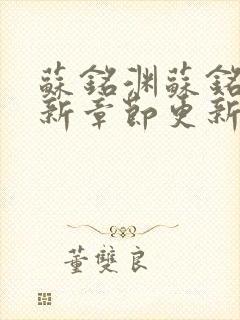 蘇銘渊蘇銘
新章節更新
董雙良